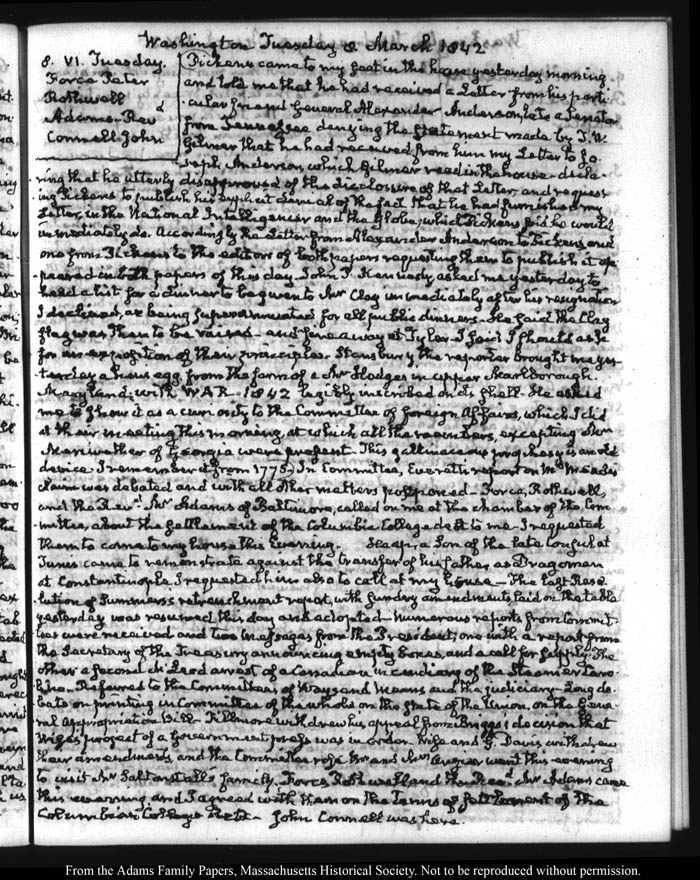 Washington Tuesday 8 March 1842
8. VI. Tuesday.
Force Peter
Rothwell
Adams. Revd
Connell John
Pickens came to my seat in the house yesterday morning.
and told me that he had received a Letter from his parti-
cular friend General Alexander Anderson, late a Senator
from Tennessee denying the statement made by T. W.
Gilmer that he had received from him my Letter to Jo-
seph Anderson, which Gilmer read in the house—decla-
ring that he utterly disapproved of the disclosure of that Letter and request-
ing Pickens to publish his explicit denial of the fact that he had furnished my
Letter, in the National Intelligencer and the Globe, which Pickens said he would
immediately do. Accordingly the Letter from Alexander Anderson to Pickens, and
one from Pickens to the editors of both papers requesting them to publish it ap-
peared in both papers of this day. John P. Kennedy asked me yesterday to
head a list for a dinner to be given to Mr Clay immediately after his resignation
I declined, as being superannuated for all public dinners. He said the Clay
flag was then to be raised—and fire away at Tyler. I said I should ask
for an exposition of their principles. Stansbury, the reporter brought me yes-
terday a hens egg, from the farm of a Mr Hodges in upper Marlborough.
Maryland; with WAR. 1842 legibly inscribed on its shell. He asked
me to show it as a curiosity to the Committee of foreign Affairs, which I did
at their meeting this morning, at which all the members, excepting
Meriwether of Georgia were present. This gallinaceous prophesy is an old
device. I remember it from 1775. In Committee, Everett's report on Mr Meade's
claim was debated and with all other matters postponed—Force, Rothwell,
and the Revd Mr Adams of Baltimore, called on me at the chamber of the Com-
mittee, about the settlement of the Columbia College debt to me. I requested
them to come to my house this Evening. Heap, a Son of the late Consul at
Tunis came to remonstrate against the transfer of his father as Dragoman
at Constantinople. I requested him also to call at my house—The last Reso-
lution of Summers's retrenchment report, with sundry amendments laid on the table
yesterday was resumed this day and adopted—numerous reports from Commit-
tees were received and two Messages from the President; one with a report from
the Secretary of the Treasury announcing empty boxes, and a call for supply. The
other a second arrest of a Canadian incendiary of the Steamer Caro-
line. Referred to the Committees of Ways and Means and the judiciary—Long de-
bate on printing in Committee of the whole on the State of the Union, on the Gene-
ral Appropriation Bill. Fillmore withdrew his appeal from Briggs's decision that
Wise's project of a Government press was in order. Wise and G. Davis withdrew
their amendments, and the Committee rose. Mr and Mrs went this evening
to visit Mr Saltonstall's family. Force Rothwell and the Revd Mr Adams came
this evening and I agreed with them on the terms of settlement of the
Columbian College debt—John Connell was here.
From the Adams Family Papers, Massachusetts Historical Society. Not to be reproduced without permission.